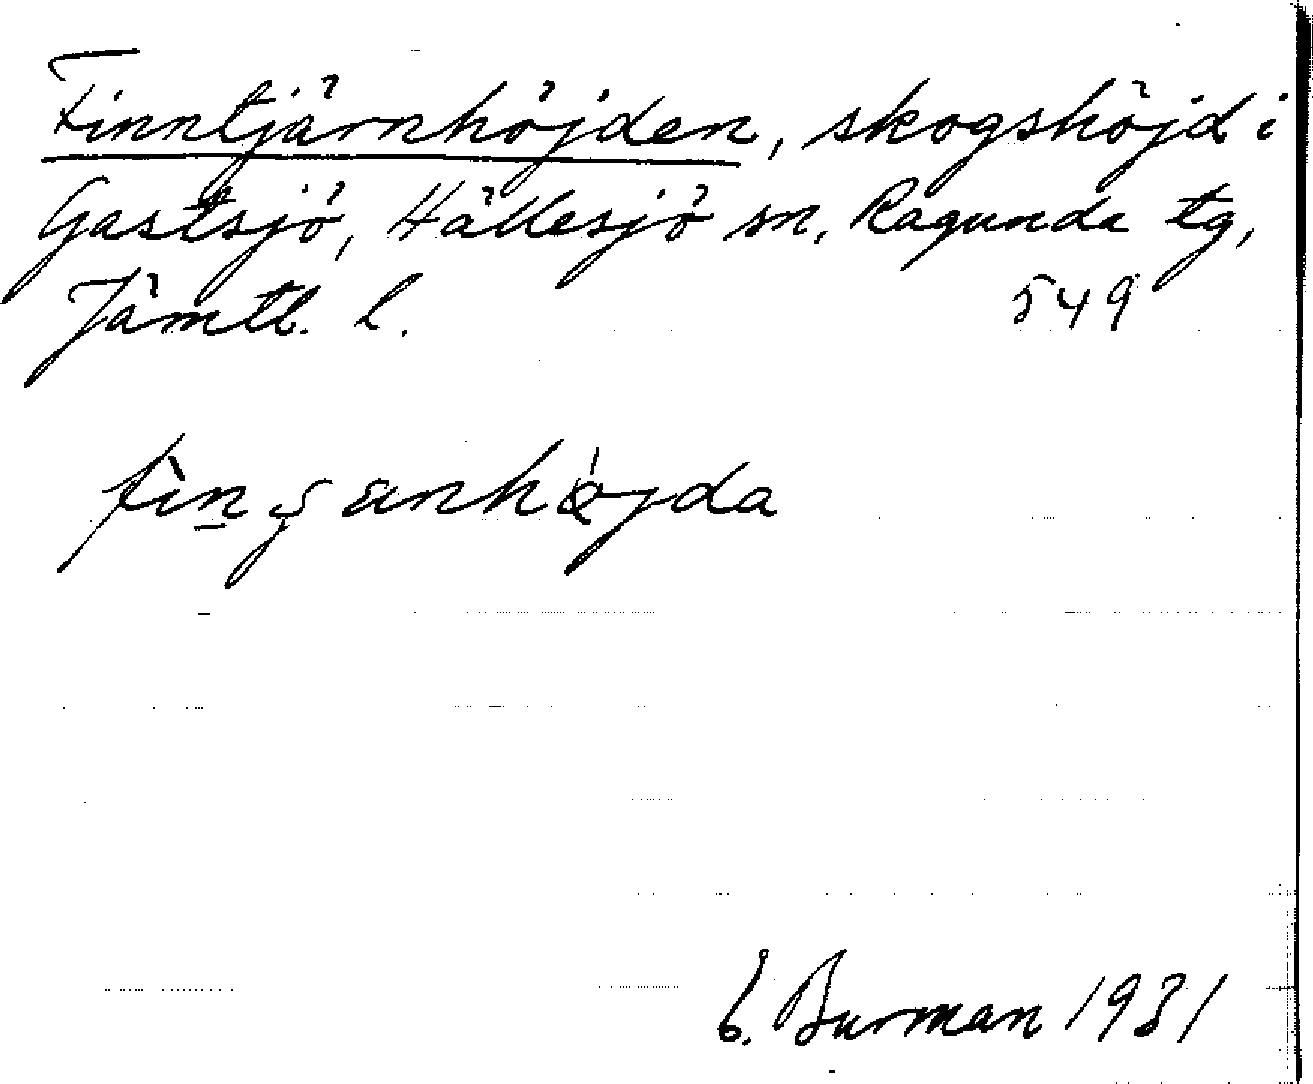 Finntjärnhöjden, skogshöjd i
Gastsjö, Hällesjö sn, Ragunda tg,
Jämtl. l. 549
E. Burman 1931